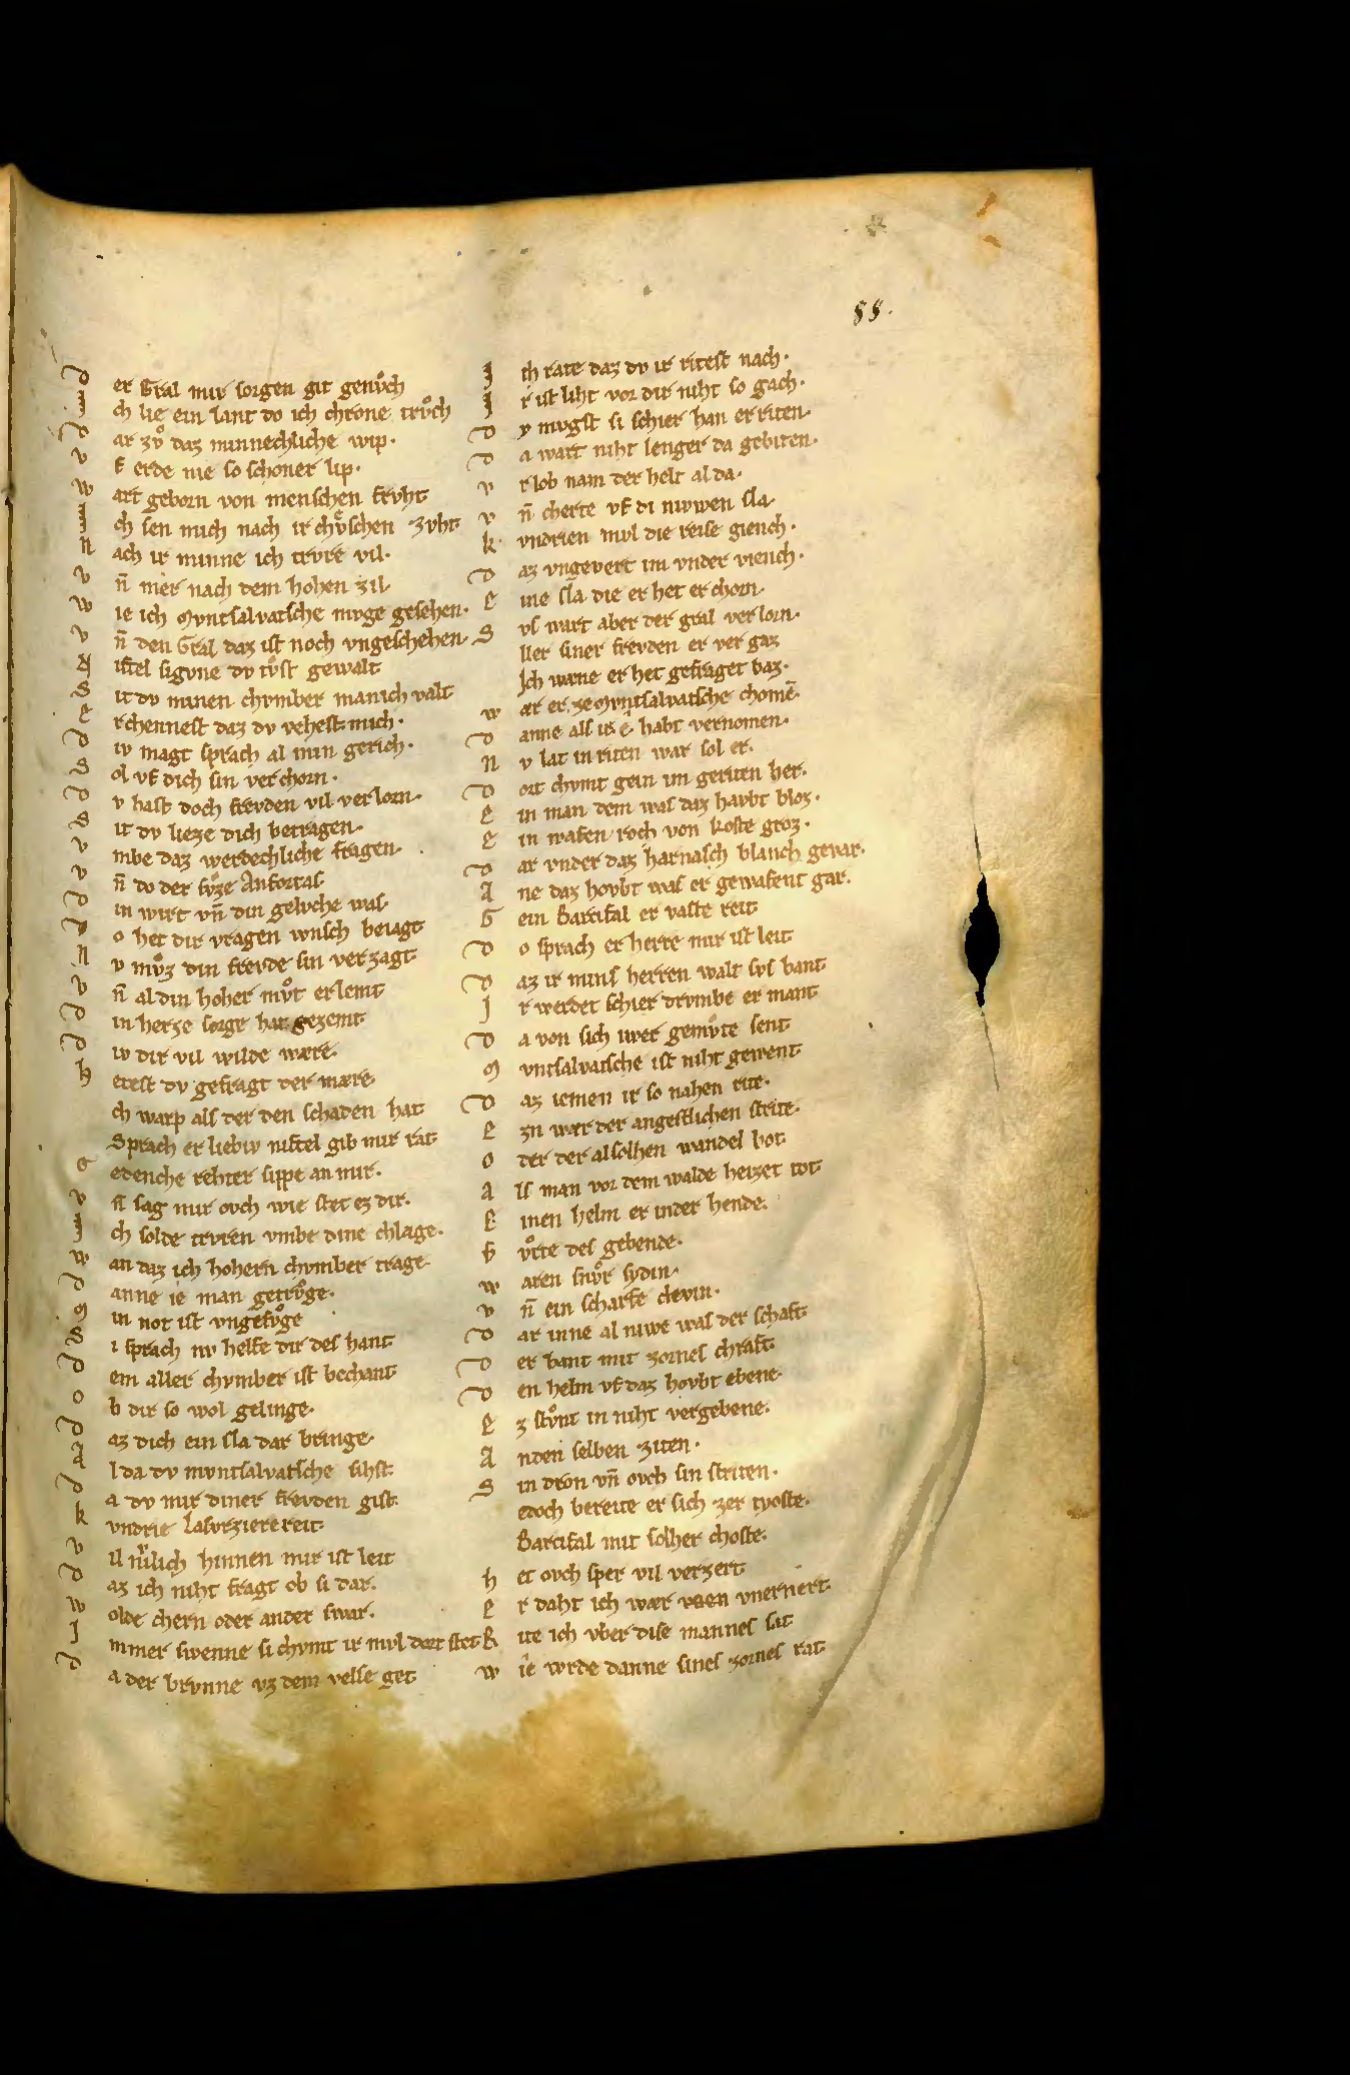 88.
D er Gral mir sorgen git genůch
I ch lie ein lant do ich chrone trůch
D ar zů daz minnechliche wip.
v f erde nie so schoner lip.
w art geborn von menschen frvht
I ch sen mich nach ir chůschen zvht
N ach ir minne ich trvre vil.
v n̄ mer nach dem hohen zil
w ie ich Mvntsalvatsche mvge gesehen.
v n̄ den Gral daz ist noch vngeschehen.
N iftel sigvne dv tůst gewalt
S it dv minen chvmber manich valt
E rchennest daz dv vehest mich.
D iv magt sprach al min gerich.
S ol vf dich sin verchorn.
D v hast doch frevden vil verlorn.
S it dv lieze dich betragen.
v mbe daz werdechliche fragen.
v n̄ do der sůze Anfortas
D in wirt vn̄ din gelvche was.
D o het dir vragen wnsch beiagt
N v můz din frevde sin verzagt
v n̄ al din hoher můt erlemt
D in herze sorge hat gezemt
D iv dir vil wilde wære.
h etest dv gefragt der mære.
ch warp als der den schaden hat
Sprach er liebiv niftel gib mir rat
G edenche rehter sippe an mir.
v n̄ sag mir ovch wie stet ez dir.
I ch solde trvren vmbe dine chlage.
w an daz ich hohern chvmber trage.
D anne ie man getrůge.
M in not ist vngefůge
S i sprach nv helfe dir des hant
D em aller chvmber ist bechant
O b dir so wol gelinge.
D az dich ein sla dar bringe.
A l da dv mvntsalvatsche sihst
D a dv mir diner frevden gist.
k vndrie lasvrziere reit.
v il niwlich hinnen mir ist leit
D az ich niht fragt ob si dar.
w olde chern oder ander swar.
I mmer swenne si chvmt ir mvl dort stet
D a der brvnne vz dem velse get
I ch rate daz dv ir ritest nach.
I r ist liht vor dir niht so gach.
D v mvgst si schier han erriten.
D a wart niht lenger da gebiten.
v rlob nam der helt al da.
v n̄ cherte vf di niwen sla
k vndrien mvl die reise giench.
D az vngevert im vnder viench.
E ine sla die er het erchorn.
S vs wart aber der gral verlorn.
ller siner frevden er vergaz
Ich wæne er het gefraget baz.
w ær er ze Mvntsalvatsche chomē.
D anne als irs e habt vernomen.
N v lat in riten war sol er.
D ort chvmt gein im geriten her.
E in man dem was daz havbt bloz.
E in wafen roch von koste groz.
D ar vnder daz harnasch blanch gevar.
A ne daz hovbt was er gewafent gar.
G ein Parcifal er vaste reit
D o sprach er herre mir ist leit
D az ir mins herren walt svs bant
I r werdet schier drvmbe ermant
D a von sich iwer gemůte sent
M vntsalvatsche ist niht gewent
D az iemen ir so nahen rite.
E zn wær der angestlichen strite.
O der der alsolhen wandel bot
A ls man vor dem walde heizet tot
E inen helm er inder hende.
F ůrte des gebende.
w aren snůr sydin.
v n̄ ein scharfe clevin.
D ar inne al niwe was der schaft
D er bant mit zornes chraft
D en helm vf daz hovbt ebene.
E z stůnt in niht vergebene.
A nden selben ziten.
S in dron vn̄ ovch sin striten.
edoch bereite er sich zer tyoste.
Parcifal mit solher choste.
h et ovch sper vil verzert
E r daht ich wær vnernert.
R ite ich vber dise mannes sat
w ie wrde danne sines zornes rat